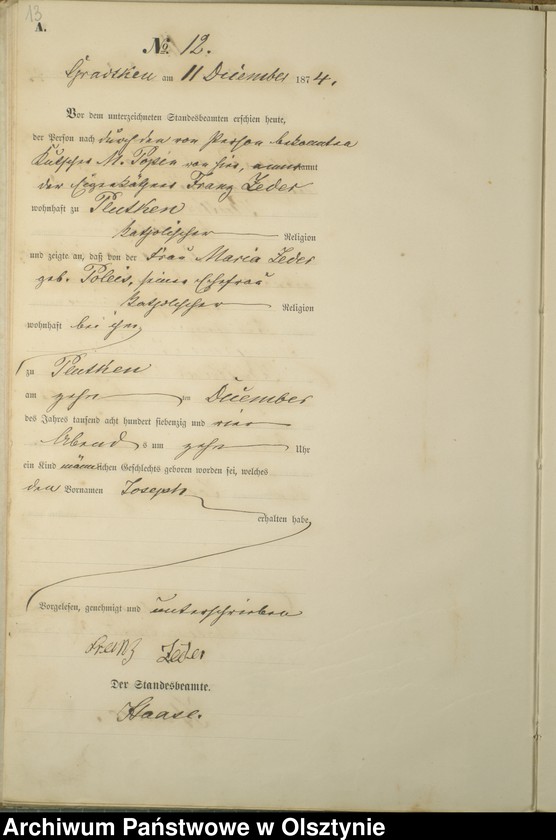 13
A.
No. 12.
Gradtken am 11 December 1874.
Vor dem unterzeichneten Standesbeamten erschien heute,
der Person nach durch den von Person bekannten
Kutscher M. von hier, anerkannt
der Eigenkäthner Franz Zeder
wohnhaft zu Plutken
katholischer Religion
und zeigte an, daß von der Frau Maria Zeder
geb. Poleis, seiner Ehefrau
katholischer Religion
wohnhaft bei ihm
zu Plutken
am zehn ten December
des Jahres tausend acht hundert siebenzig und vier
Abends um zehn Uhr
ein Kind männlichen Geschlechts geboren worden sei, welches
den Vornamen Joseph
erhalten habe
Vorgelesen, genehmigt und unterschrieben
Franz Zeder
Der Standesbeamte.
Haase.
Archiwum Państwowe w Olsztynie